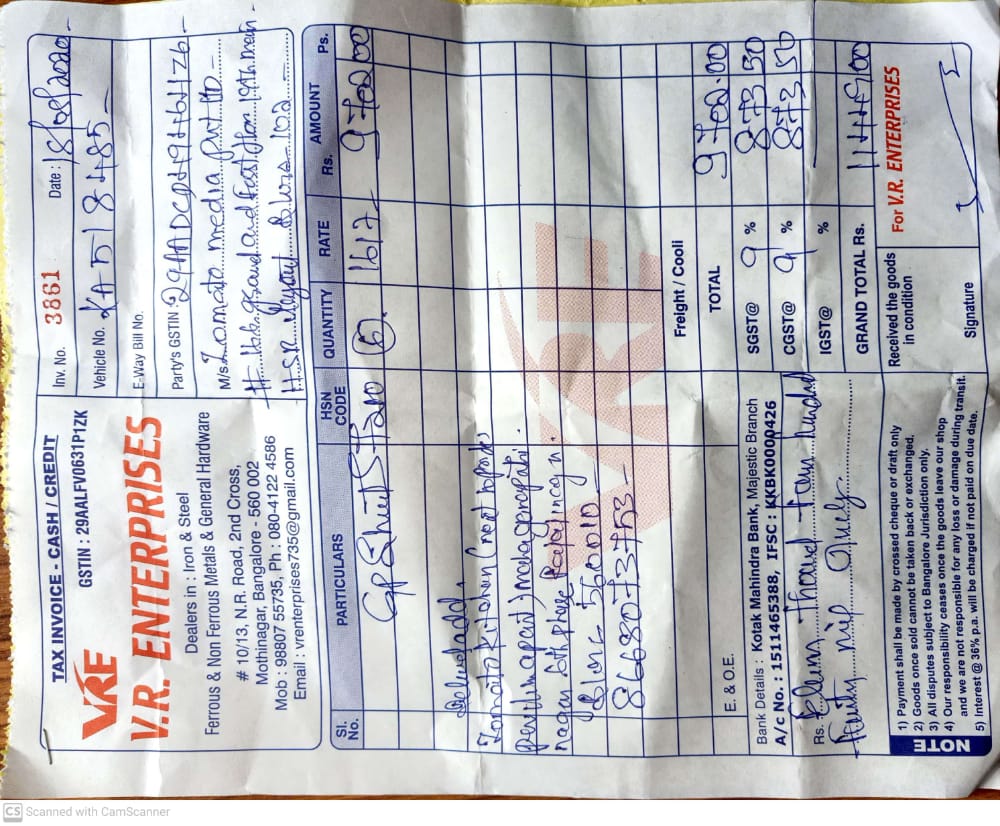 TAX INVOICE - CASH / CREDIT
GSTIN : 29AALFV0631P1ZK
VRE
V.R. ENTERPRISES
Dealers in : Iron & Steel
Ferrous & Non Ferrous Metals & General Hardware
# 10/13, N.R. Road, 2nd Cross,
Mothinagar, Bangalore - 560 002
Mob : 98807 55735, Ph : 080-4122 4586
Email : vrenterprises735@gmail.com
Inv. No. 3861 Date :
Vehicle No. KA 51 8485
E-Way Bill No.
Party's GSTIN
M/s Zomato media pvt ltd
HSR Layout Blore 102
Sl. No. PARTICULARS HSN CODE QUANTITY RATE AMOUNT Rs. Ps.
GP Sheet 7210 6 1617 9702 00
Zomato kitchen
nagar
Blore 560010
8668073753
VRE
Freight / Cooli
E. & O.E. TOTAL 9702.00
Bank Details : Kotak Mahindra Bank, Majestic Branch
A/c No. : 1511465388, IFSC : KKBK0000426
SGST@ 9 % 873 50
CGST@ 9 % 873 50
IGST@ %
Rs. Eleven Thousand Four hundred
GRAND TOTAL Rs. 00
NOTE
1) Payment shall be made by crossed cheque or draft only
2) Goods once sold cannot be taken back or exchanged.
3) All disputes subject to Bangalore Jurisdiction only.
4) Our responsibility ceases once the goods leave our shop
and we are not responsible for any loss or damage during transit.
5) Interest @ 36% p.a. will be charged if not paid on due date.
Received the goods
in condition
Signature
For V.R. ENTERPRISES
CS Scanned with CamScanner